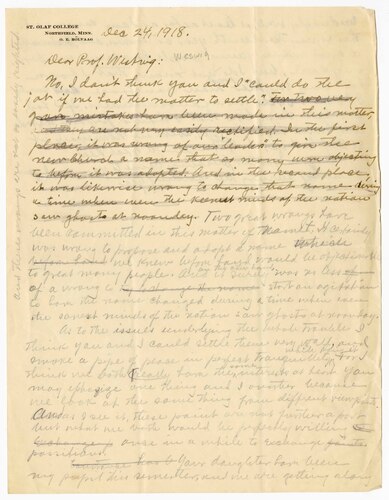 ST. OLAF COLLEGE
NORTHFIELD, MINN.
O. E. ROLVAAG
Dec 24, 1918.
Dear Prof. Weswig:
Weswig
No, I don't think you and I could do the
job if we had the matter to settle.
mistakes have been made in this matter,
they are not very easily rectified. In the first
place, it was wrong of our "leaders" to give the
new church a name that so many were objecting
to before it was adopted. And in the second place,
it was likewise wrong to change that name during
a time when even the keenest minds of the nation
saw ghosts at noonday. Two great wrongs have
been committed in this matter of name. It
was wrong to propose and adopt a name which
we knew before hand would be objectionable
to great many people. And it was no less
of a wrong to start an agitation
to have the name changed during a time when even
the sanest minds of the nation saw ghosts at noonday.
As to the issues underlying the whole trouble I
think you and I could settle them very well, and
smoke a pipe of peace in perfect tranquility. For I
think we both really have the same at heart. You
may emphasize one thing and I another because
we look at the same thing from different viewpoints.
And as I see it, these points are not further apart
but what we both would be perfectly willing
once in a while to exchange
positions.
Your daughter has been
my pupil this semester, and we are getting along